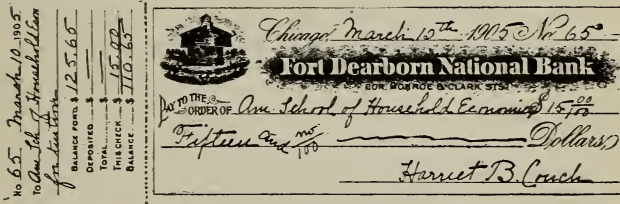 No 65 March 10 1905
To Am. Sch. of Household Econ
for tuition
BALANCE FORD. $ 125.65
DEPOSITED $
TOTAL $
THIS CHECK $ 15.00
BALANCE $ 110.65
Chicago March 10th 1905 No 65
Fort Dearborn National Bank
COR. MONROE & CLARK STS.
PAY TO THE
ORDER OF Am. School of Household Economics $ 15 00/100
Fifteen and no/100 Dollars
Harriet B. Couch